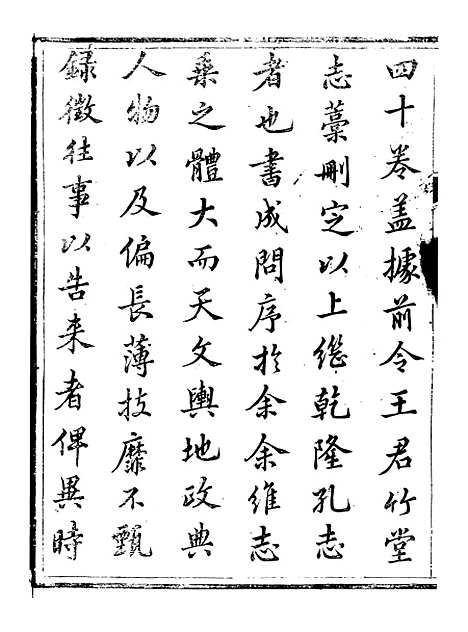 四十卷盖據前令王君竹堂
志藁刪定以上繼乾隆孔志
者也書成問序於余余維志
乘之體大而天文輿地政典
人物以及偏長薄技靡不甄
録徵往事以告来者俾異時